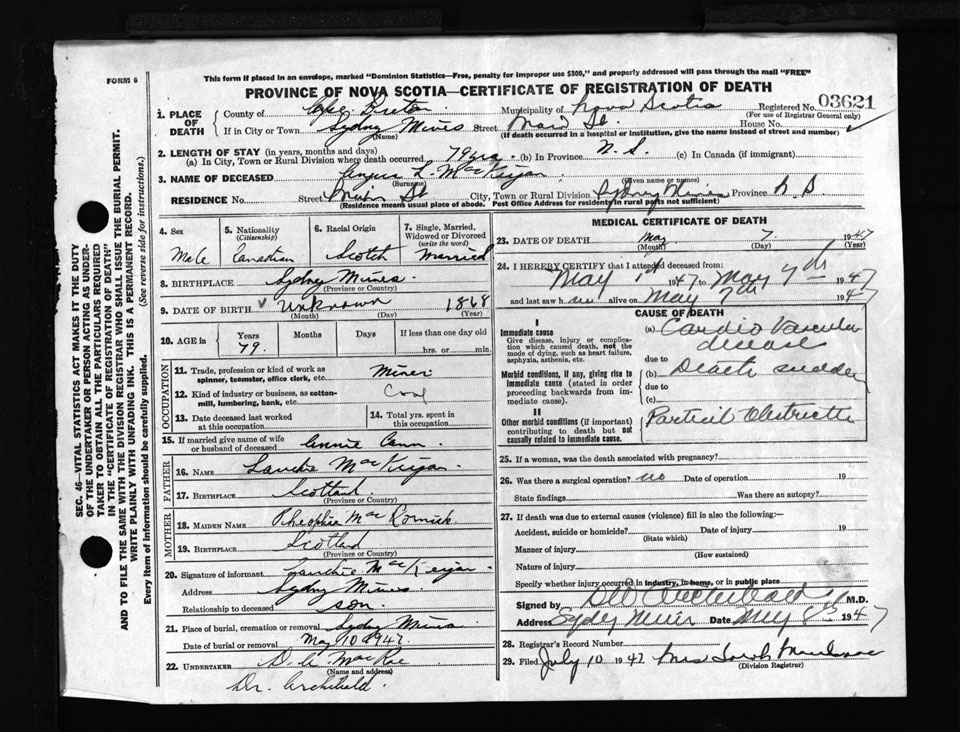 FORM 6
This form if placed in an envelope, marked "Dominion Statistics—Free, penalty for improper use $300," and properly addressed will pass through the mail "FREE"
PROVINCE OF NOVA SCOTIA—CERTIFICATE OF REGISTRATION OF DEATH
1. PLACE OF DEATH
County of Cape Breton Municipality of Nova Scotia Registered No. 03621
(For use of Registrar General only)
If in City or Town Sydney Mines Street Main St. House No.
(Name) (If death occurred in a hospital or institution, give the name instead of street and number)
2. LENGTH OF STAY (in years, months and days)
(a) In City, Town or Rural Division where death occurred 79 yrs. (b) In Province N. S. (c) In Canada (if immigrant)
3. NAME OF DECEASED Angus L. MacKeigan
(Surname) (Given name or names)
RESIDENCE No. Street Main St City, Town or Rural Division Sydney Mines Province N S
(Residence means usual place of abode. Post Office Address for residents in rural parts not sufficient)
4. Sex
Male
5. Nationality
(Citizenship)
Canadian
6. Racial Origin
Scotch
7. Single, Married, Widowed or Divorced
(write the word)
Married
8. BIRTHPLACE Sydney Mines
(Province or Country)
9. DATE OF BIRTH Unknown 1868
(Month) (Day) (Year)
10. AGE in Years Months Days If less than one day old
79. hrs. or min.
OCCUPATION
11. Trade, profession or kind of work as spinner, teamster, office clerk, etc. Miner
12. Kind of industry or business, as cotton-mill, lumbering, bank, etc. Coal
13. Date deceased last worked at this occupation
14. Total yrs. spent in this occupation
15. If married give name of wife or husband of deceased Annie Cann
FATHER
16. NAME Lauchie MacKeigan
17. BIRTHPLACE Scotland
(Province or Country)
MOTHER
18. MAIDEN NAME MacCormick
19. BIRTHPLACE Scotland
(Province or Country)
20. Signature of informant Lauchie MacKeigan
Address Sydney Mines
Relationship to deceased son
21. Place of burial, cremation or removal Sydney Mines
Date of burial or removal May 10 1947
22. UNDERTAKER MacRae
(Name and address)
Dr. Archibald.
MEDICAL CERTIFICATE OF DEATH
23. DATE OF DEATH May 7 1947
(Month) (Day) (Year)
24. I HEREBY CERTIFY that I attended deceased from:
May 1st 1947 to May 7th 1947
and last saw him alive on May 7th 1947
CAUSE OF DEATH
I
Immediate cause
Give disease, injury or complication which caused death, not the mode of dying, such as heart failure, asphyxia, asthenia, etc.
(a) Cardio Vascular disease
due to
Morbid conditions, if any, giving rise to immediate cause (stated in order proceeding backwards from immediate cause).
(b) Death sudden
due to
(c)
II
Other morbid conditions (if important) contributing to death but not causally related to immediate cause.
25. If a woman, was the death associated with pregnancy?
26. Was there a surgical operation? no Date of operation 19
State findings Was there an autopsy?
27. If death was due to external causes (violence) fill in also the following:—
Accident, suicide or homicide? Date of injury 19
(State which)
Manner of injury
(How sustained)
Nature of injury
Specify whether injury occurred in industry, in home, or in public place
Signed by Archibald M.D.
Address Sydney Mines Date May 8th 1947
28. Registrar's Record Number
29. Filed July 10 1947 Mrs Sarah
(Division Registrar)
SEC. 46—VITAL STATISTICS ACT MAKES IT THE DUTY
OF THE UNDERTAKER OR PERSON ACTING AS UNDERTAKER TO OBTAIN ALL THE PARTICULARS REQUIRED
IN THE "CERTIFICATE OF REGISTRATION OF DEATH"
AND TO FILE THE SAME WITH THE DIVISION REGISTRAR WHO SHALL ISSUE THE BURIAL PERMIT.
WRITE PLAINLY WITH UNFADING INK. THIS IS A PERMANENT RECORD.
Every item of information should be carefully supplied. (See reverse side for instructions.)